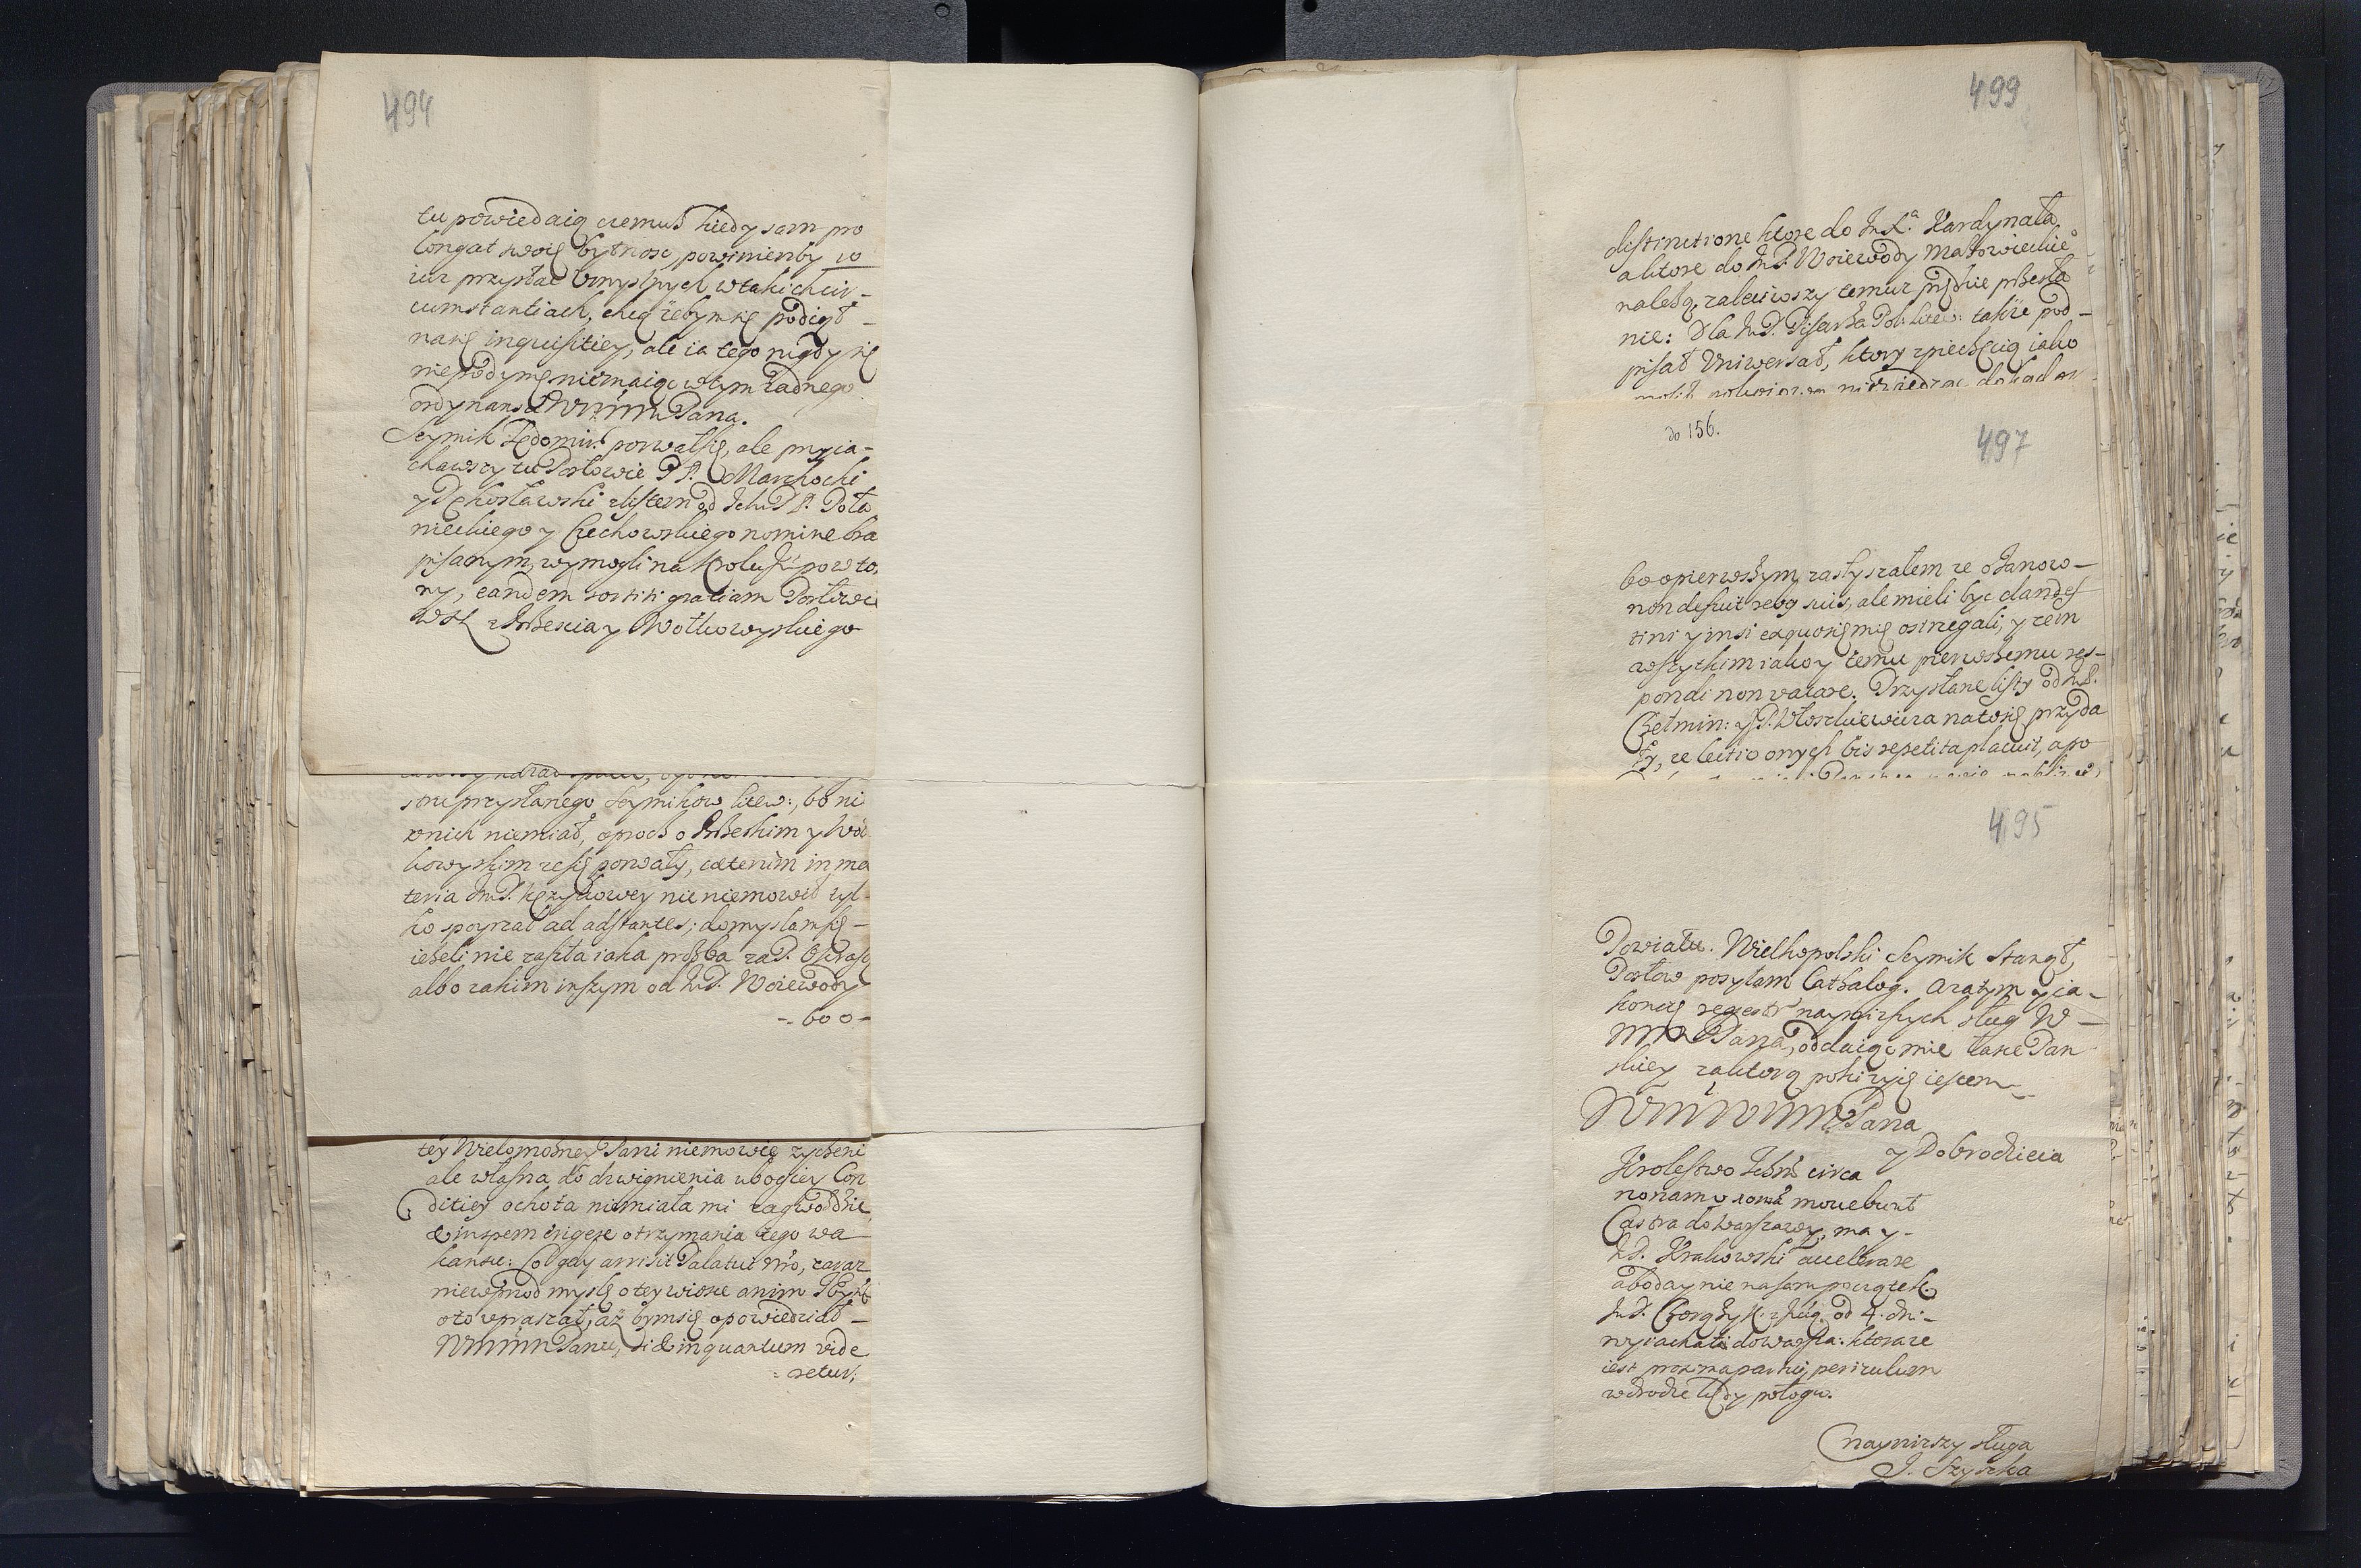 494
tu powiedaią czemuż kiedy sam pro
longat swoię bytnosc, powinienby io
iuz przysłac umyslnych w takich cir-
cumstantiach, chcą żebym się podiął
nasię inquisitiey, ale ia tego nigdy się
niepodymę niemaiąc w tym żadnego
ordynansu WMM Pana.
Seymik Sędomir: porwałsię, ale przyia-
chawszy tu Posłowie PP. Marchocki
y Dębostawski z listem od Ich PP. Poła
nieckiego y Czechowskiego nomine bra
pisanym, wymogli na Krolu powto
ny, eandem sortiti gratiam Posłowie
z Brzescia y Wołkowyskiego
stru przysłanego Seymikow litew:, bo ni
o nich niemiał, oprocz o Brzeskim y Woł
kowyskim ze się porwały, caeterum in ma
teria nic niemowił tyl
ko spoyrzał ad adstantes; domyslamsię
ieżeli nie zaszła iaka prożba za P.
albo iakim inszym od Im P. Woiewody
-- boo-
tey Wielomożney Pani niemowię życzeni
ale własna do dzwignienia ubogiey Con
ditiey ochota niemiała mi
& in spem erigere otrzymania tego wa
kansu: Co gdy arrisit Palatui zaraz
niewprzod myslę o tey wiosce anim
oto upraszał, aż bymsię opowiedział
WMM Panu, si & inquantum vide
= retur;
499
distinctione ktore do Im X. Kardynała
a ktore do Im P. Woiewody Mazowieckie
należą, zaleciwszy temuz
nie: Dla Im P. Pisarza Pol: litew: także pod-
pisał Uniwersał, ktory z niechęcią iako
do 156.
497
bo o pierwszym, zasłyszałem ze o Janow-
non defuit rebg suis, ale mieli byc clandes
tini y insi ex quo się nie ostrzegali, y rem
wszytkim iako y temu pierwszemu res-
pondi non vacare. Przysłane listy od Im P.
Chełmin: y P. Włoszkiewicza natosię przyda
ły, ze lectio onych bis repetita placuit, a po
495
Powiatu. Wielkopolski Seymik stanął,
Posłow posyłam Cathalog. a zatym y ia-
koncę regestr nayniższych sług W-
MM Pana, oddaiąc mię łasce Pan
skiey za ktorą poki zyię iestem
WMM WMM Pana
y Dobrodzieia
Krolestwo Ichm circa
nonam movebunt
Castra do Warszawy, ma y-
Im P. Krakowski accelerare
a boday nie na sam początek.
Im P. Chorąży K. z od 4. dni-
wyiachali do Warsza: ktora ze
iest proxima partui, periculum
w drodze tedy połogu.
naynizszy sługa
J. Szyszka